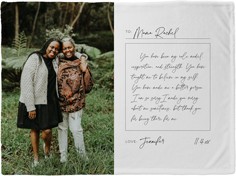 TO: Mama Rachel
You have been my role model,
inspiration, and strength. You have
taught me to believe in my self.
You have made me a better person.
I am so sorry I made you worry
about me sometimes, but thank you
for being there for me.
LOVE: Jennifer